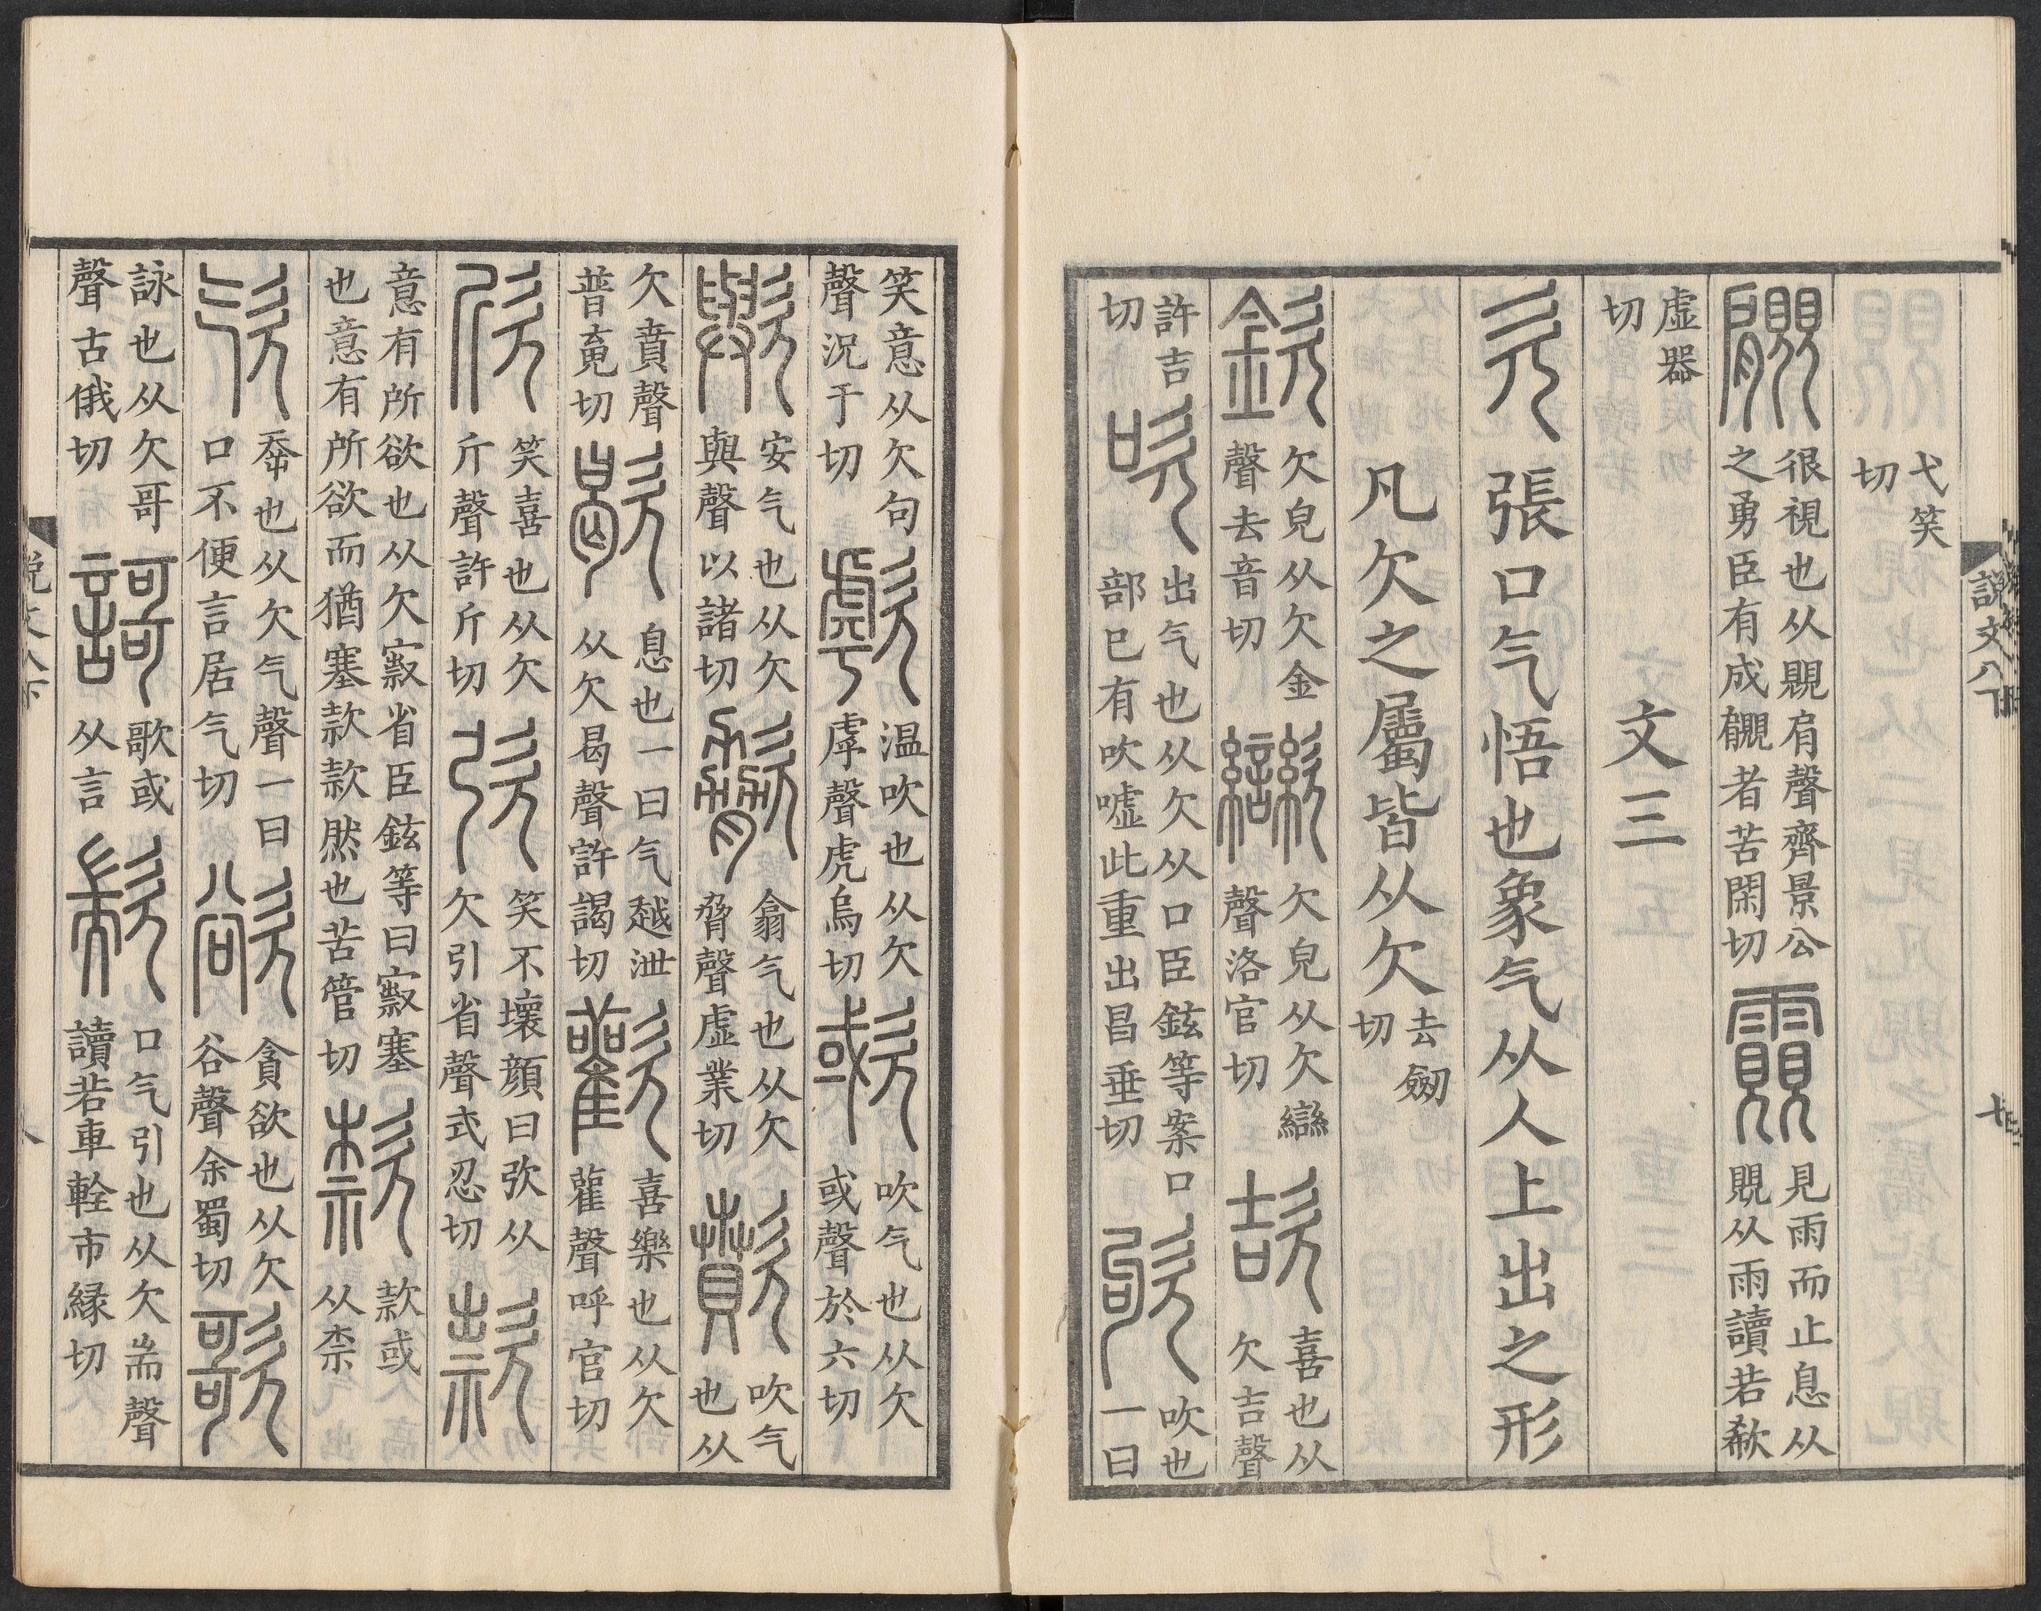 弋笑
切
覵很視也从覞肩聲齊景公
之勇臣有成覵者苦閑切
覼見雨而止息从
覞从雨讀若欷
虛器
切
文三
欠張口气悟也象气从人上出之形
凡欠之屬皆从欠去劒
切
欽欠皃从欠金
聲去音切
欒欠皃从欠䜌
聲洛官切
欯喜也从
欠吉聲
許吉
切
吹出气也从欠从口臣鉉等案口
部已有吹噓此重出昌垂切
欨吹也
一曰
說文八下
七
笑意从欠句
聲況于切
歑溫吹也从欠
虖聲虎烏切
㰲吹气也从欠
或聲於六切
歟安气也从欠
與聲以諸切
歙翕气也从欠
脅聲虛業切
歕吹气
也从
欠賁聲
普䰟切
歇息也一曰气越泄
从欠曷聲許謁切
歡喜樂也从欠
雚聲呼官切
欣笑喜也从欠
斤聲許斤切
弞笑不壞顏曰弞从
欠引省聲式忍切
款
意有所欲也从欠㱁省臣鉉等曰㱁塞
也意有所欲而猶塞款款然也苦管切
款或
从柰
㰟㐁也从欠气聲一曰
口不便言居气切
欲貪欲也从欠
谷聲余蜀切
歌
詠也从欠哥
聲古俄切
謌歌或
从言
歂口气引也从欠耑聲
讀若車輇市緣切
說文八下
八